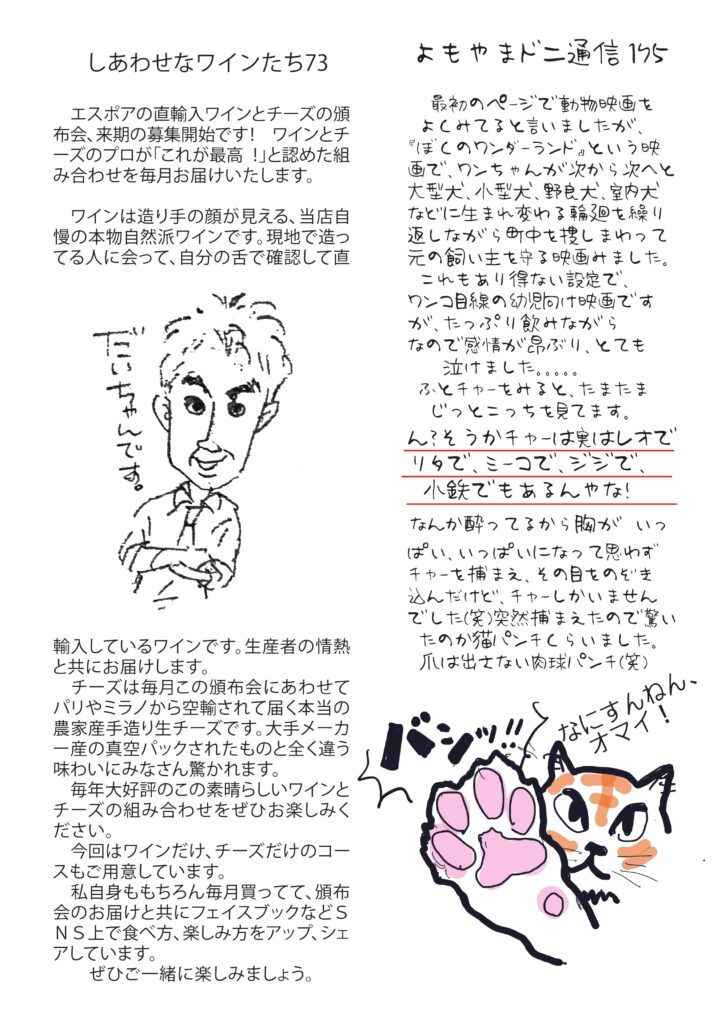 しあわせなワインたち73
エスポアの直輸入ワインとチーズの頒
布会、来期の募集開始です!　ワインとチ
ーズのプロが「これが最高 !」と認めた組
み合わせを毎月お届けいたします。
ワインは造り手の顔が見える、当店自
慢の本物自然派ワインです。現地で造っ
てる人に会って、自分の舌で確認して直
だいちゃんです。
輸入しているワインです。生産者の情熱
と共にお届けします。
チーズは毎月この頒布会にあわせて
パリやミラノから空輸されて届く本当の
農家産手造り生チーズです。大手メーカ
ー産の真空パックされたものと全く違う
味わいにみなさん驚かれます。
毎年大好評のこの素晴らしいワインと
チーズの組み合わせをぜひお楽しみく
ださい。
今回はワインだけ、チーズだけのコー
スもご用意しています。
私自身ももちろん毎月買ってて、頒布
会のお届けと共にフェイスブックなどＳ
ＮＳ上で食べ方、楽しみ方をアップ、シェ
アしています。
ぜひご一緒に楽しみましょう。
よもやまドニ通信175
最初のページで動物映画を
よくみてると言いましたが、
『ぼくのワンダーランド』という映
画で、ワンちゃんが次から次へと
大型犬、小型犬、野良犬、室内犬
などに生まれ変わる輪廻を繰り
返しながら町中を捜しまわって
元の飼い主を守る映画みました。
これもあり得ない設定で、
ワンコ目線の幼児向け映画です
が、たっぷり飲みながら
なので感情が昂ぶり、とても
泣けました。。。。。
ふとチャーをみると、たまたま
じっとこっちを見てます。
ん?そうかチャーは実はレオで
リタで、ミーコで、ジジで、
小鉄でもあるんやな!
なんか酔ってるから胸が いっ
ぱい、いっぱいになって思わず
チャーを捕まえ、その目をのぞき
込んだけど、チャーしかいません
でした(笑)突然捕まえたので驚い
たのか猫パンチくらいました。
爪は出さない肉球パンチ(笑)
バシッ!!
なにすんねん、
オマイ!